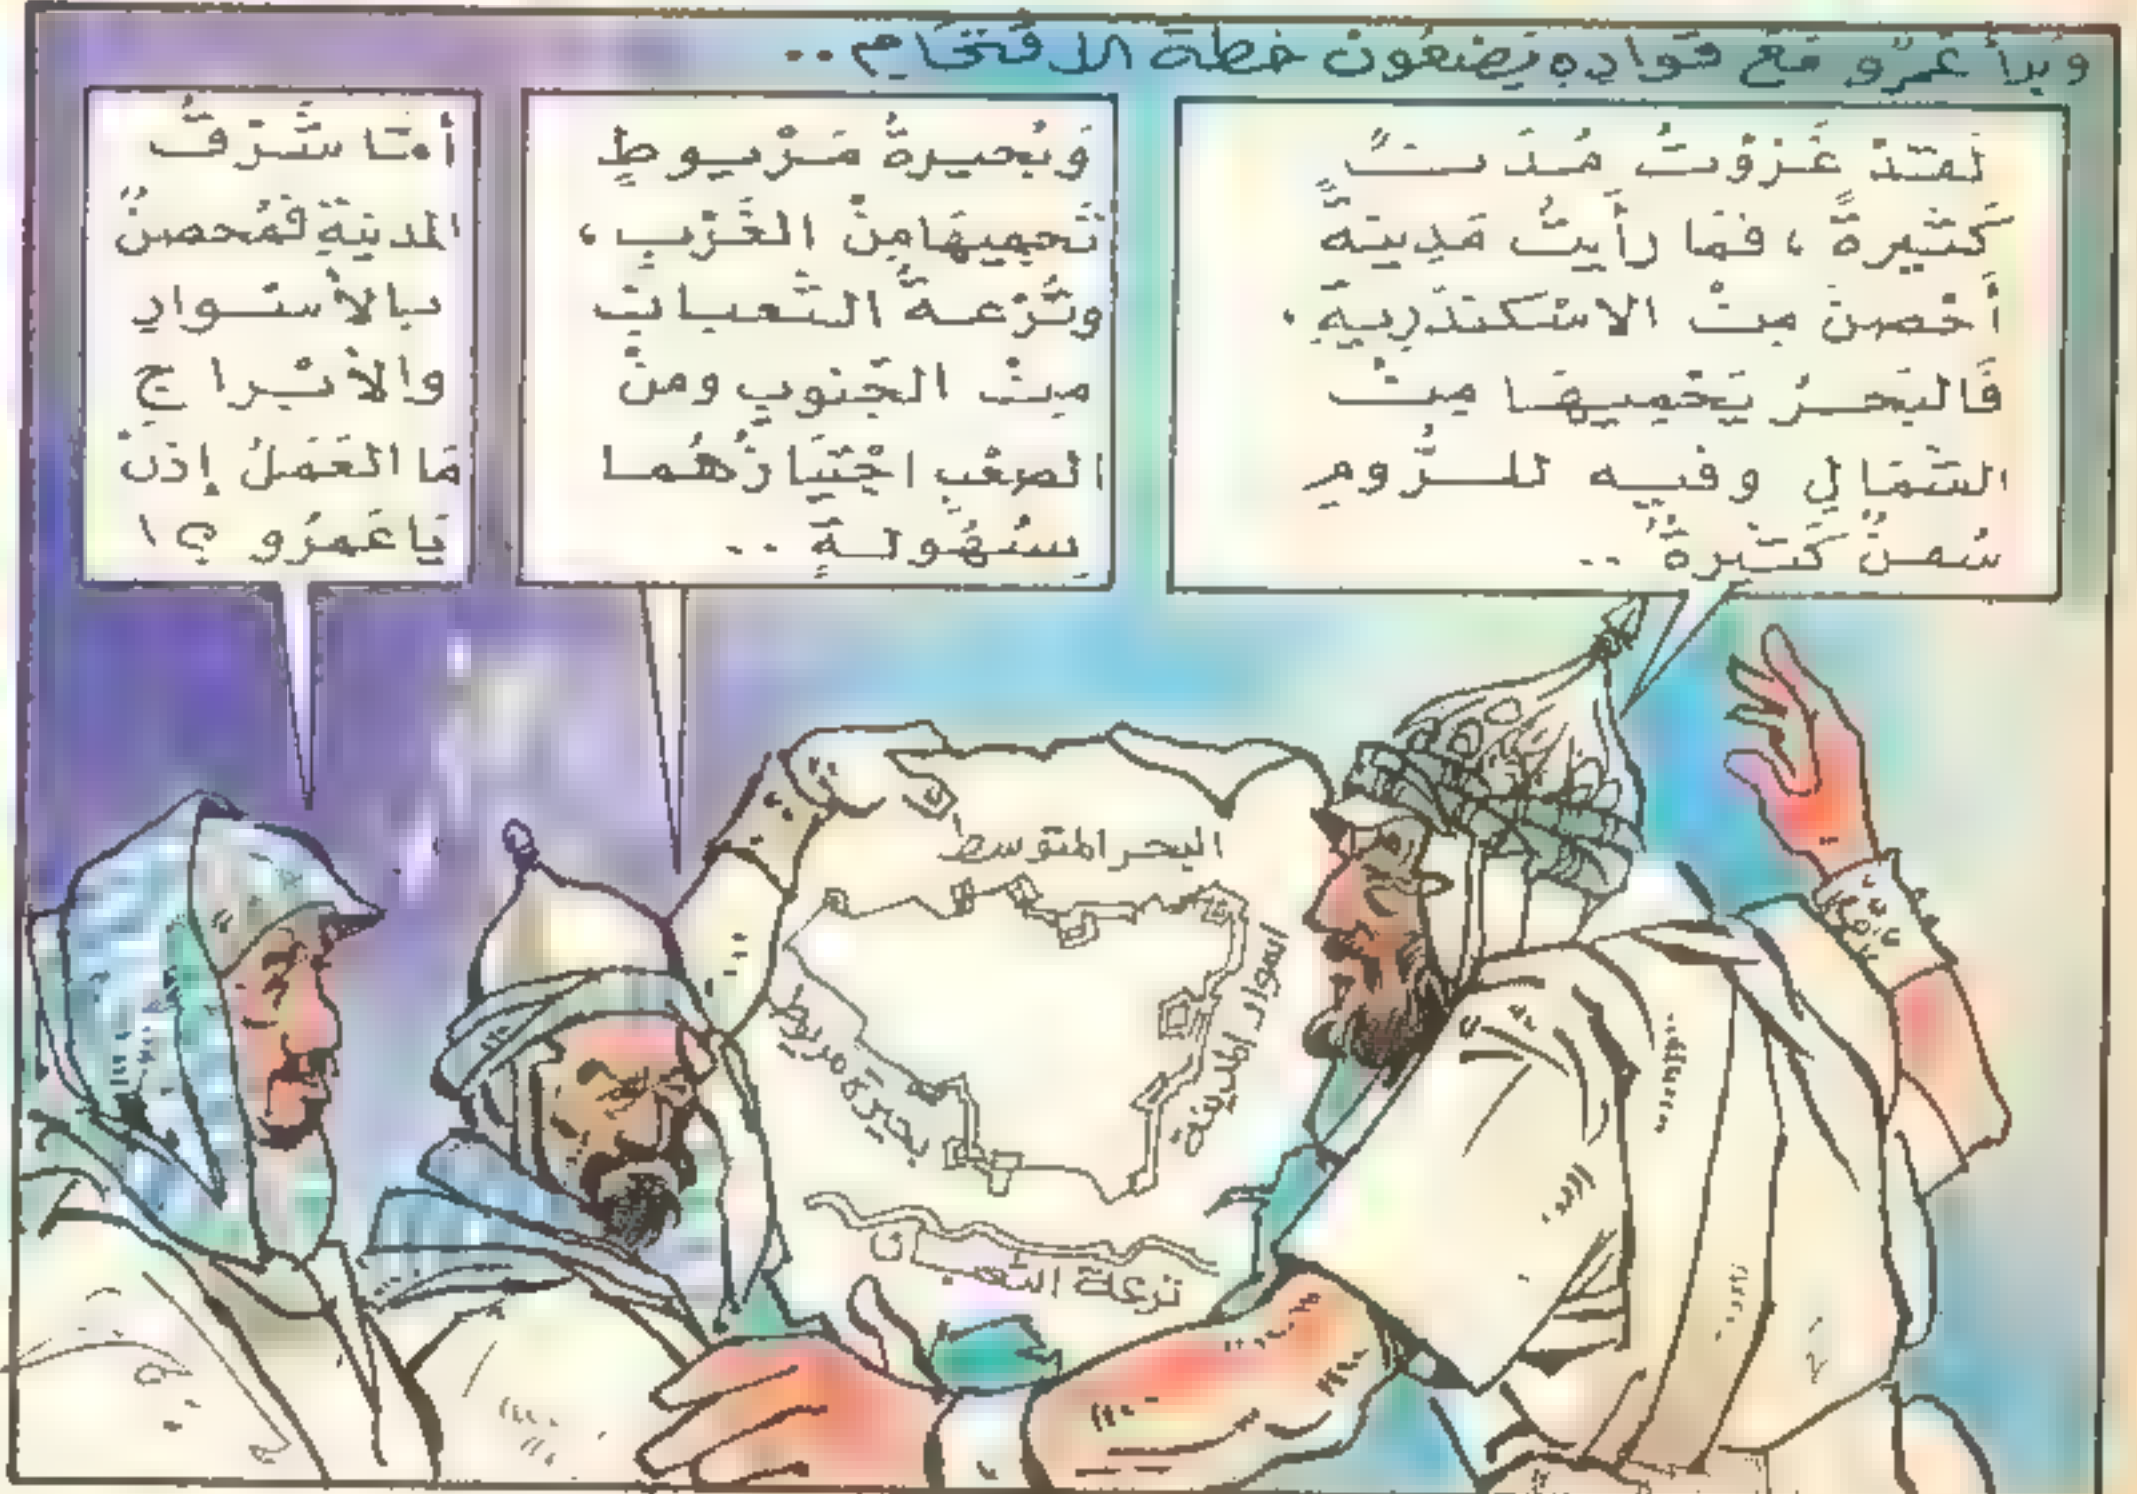 وبدأ عمرو مع قواده يضعون خطة الاقتحام ..
لَقَدْ غَزَوْتُ مُدُناً
كَثيرةً ، فَمَا رأَيتُ مَدِينةً
أَحْصنَ مِنْ الاسْكندَرِيةِ ،
فَالبَحرُ يَحْمِيهَا مِنْ
الشَّمَالِ وفيه للرُّومِ
سُفنٌ كَثيرةٌ ..
وَبُحيرةُ مَرْيوطٍ
تَحمِيهَا مِنْ الغَرْبِ ،
وتُرْعةُ الثعبانِ
مِنْ الجَنوبِ ومنْ
الصعْبِ اجْتيَازُهُما
بِسُهُولةٍ ..
أمَّا شَرْقُ
المدينةِ فَمُحصنٌ
بالأسْوارِ
والأبْراجِ
مَا العَمَلُ إذَنْ
يَا عَمرُو ؟!
البحر المتوسط
اسوار المدينة
بحيرة مريوط
ترعة الثعبان